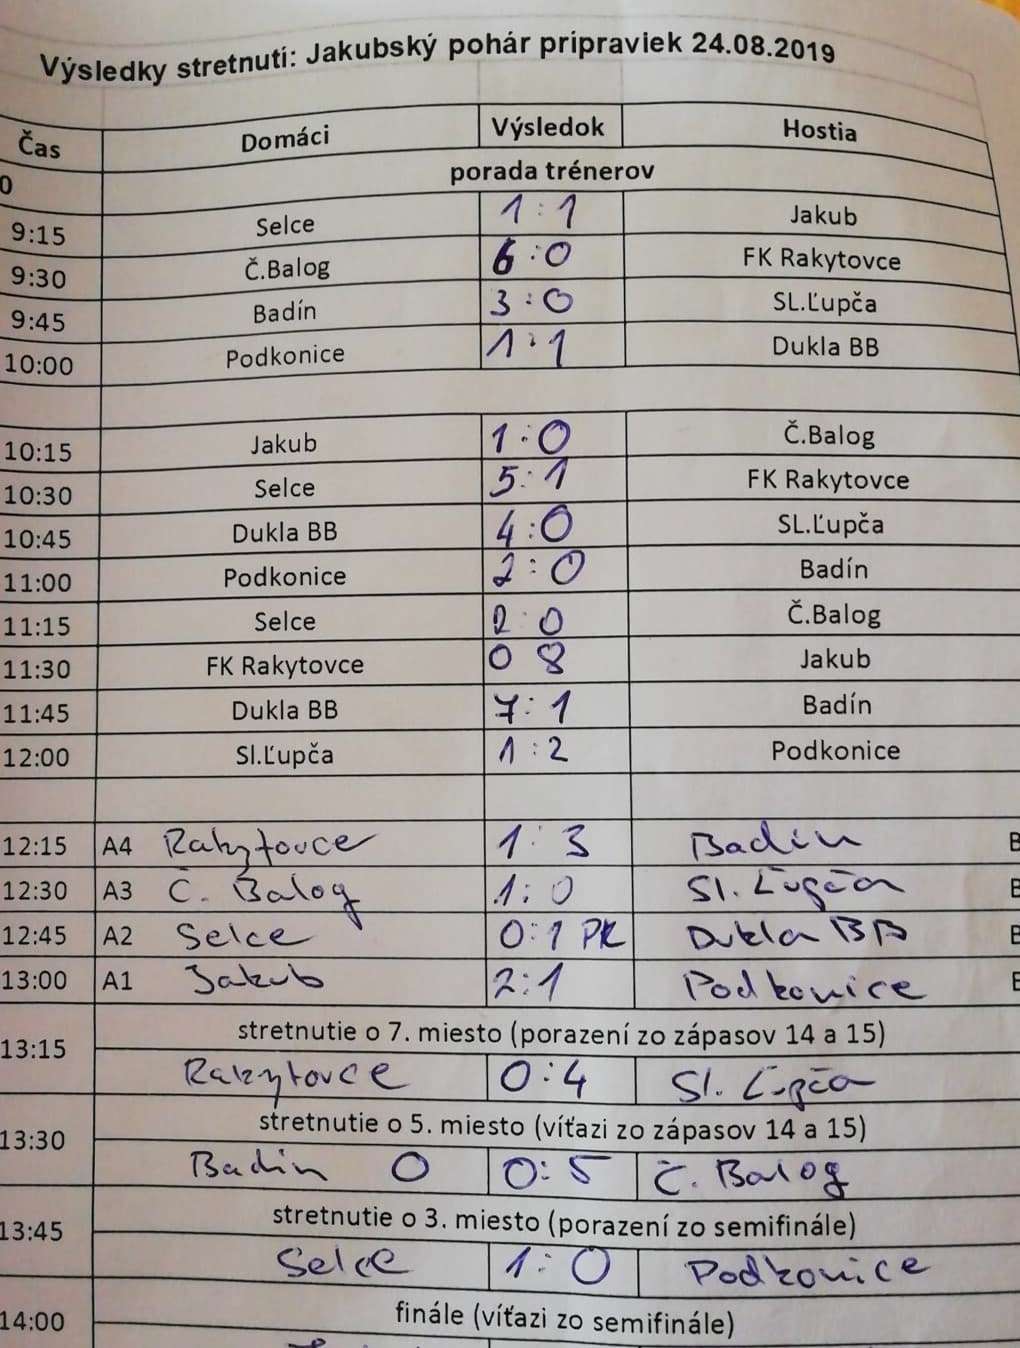 Výsledky stretnutí: Jakubský pohár pripraviek 24.08.2019
Čas Domáci Výsledok Hostia
0 porada trénerov
9:15 Selce 1:1 Jakub
9:30 Č.Balog 6:0 FK Rakytovce
9:45 Badín 3:0 SL.Ľupča
10:00 Podkonice 1:1 Dukla BB
10:15 Jakub 1:0 Č.Balog
10:30 Selce 5:1 FK Rakytovce
10:45 Dukla BB 4:0 SL.Ľupča
11:00 Podkonice 2:0 Badín
11:15 Selce 2:0 Č.Balog
11:30 FK Rakytovce 0 8 Jakub
11:45 Dukla BB 7:1 Badín
12:00 Sl.Ľupča 1:2 Podkonice
12:15 A4 Rakytovce 1:3 Badín B
12:30 A3 Č. Balog 1:0 Sl. Ľupča B
12:45 A2 Selce 0:1 PK Dukla BB B
13:00 A1 Jakub 2:1 Podkonice B
13:15 stretnutie o 7. miesto (porazení zo zápasov 14 a 15)
Rakytovce 0:4 Sl. Ľupča
13:30 stretnutie o 5. miesto (víťazi zo zápasov 14 a 15)
Badín 0 0:5 Č. Balog
13:45 stretnutie o 3. miesto (porazení zo semifinále)
Selce 1:0 Podkonice
14:00 finále (víťazi zo semifinále)